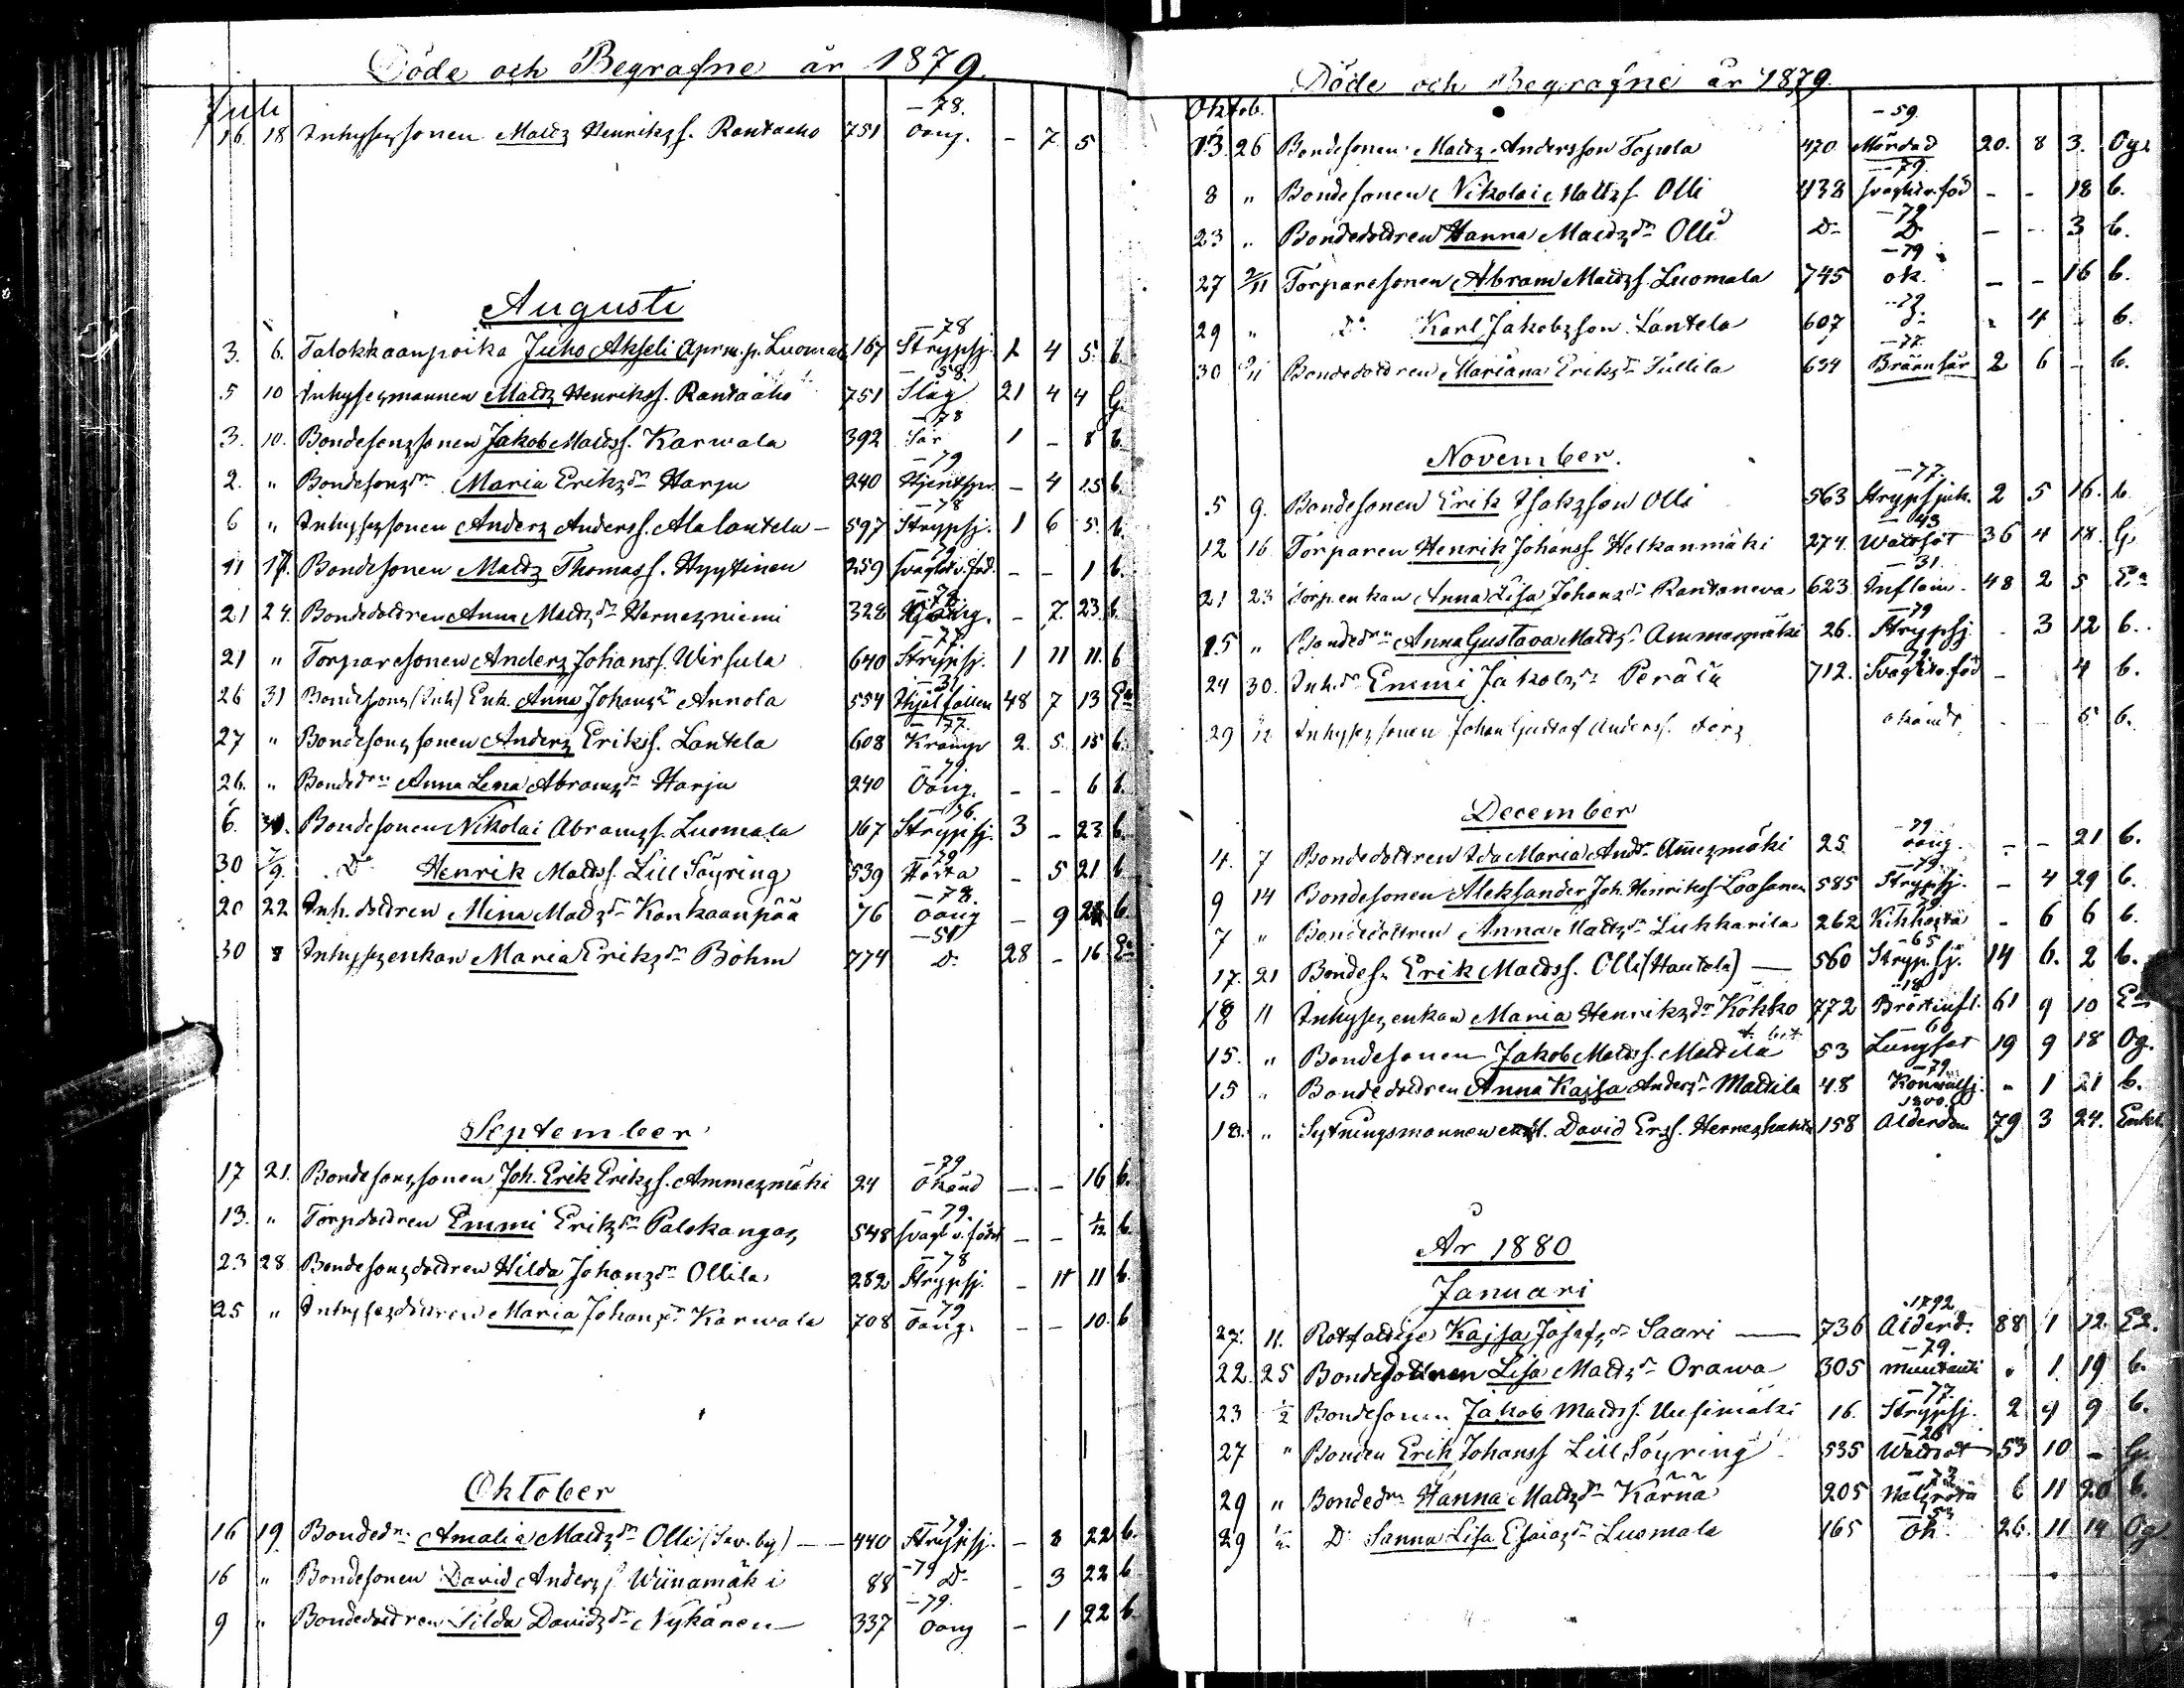 Döde och Begrafne år 1879.
Juli
16. 18 Inhysessonen Matts Henriks s. Rantaaho 751 -78. oang. - 7 5
Augusti
3. 6. Talokkaanpoika Juho Akseli Aprm. p. Luomala 167 -78 Strypsj. 1 4 5 b.
5 10 Inhysesmannen Matts Henrikss. Rantaaho 751 -58. Slag 21 4 4 G.
3. 10. Bondesonssonen Jakob Matss. Karwala 392 -78 Sår 1 - 8 b.
2. " Bondesonsdn Maria Eriksdn Harju 240 -79 - 4 15 b.
6 " Inhysessonen Anders Anderss. Ala Lantela - 597 -78 Strypsj. 1 6 5. b.
11 17. Bondesonen Matts Thomas s. Hyytinen 259 -79 svaghet v. föd. - - 1 b.
21 24. Bondedottren Anna Mattsdn Hernesniemi 328 oang. - 7. 23. b.
21 " Torparesonen Anders Johanss. Wirsula 640 -77 Strypsj. 1 11 11. b
26 31 Bondesons (Inh) Enk. Anna Johansdn Annola 554 -31 Ihjelfallen 48 7 13 Ea
27 " Bondesonssonen Anders Erikss. Lantela 608 -77 Kramp 2. 5. 15 b.
26. " Bondedrn Anna Lena Abramsdn Harju 240 -79 Oang. - - 6 b.
6. 31. Bondesonen Nikolai Abrams s. Luomala 167 -76. Strypsj. 3 - 23. b.
30 7/9. Do Henrik Matss. Lill Söyring 539 -79 Hosta - 5 21 b
20 22 Inh. dottren Mina Matsdn Kankaanpää 76 -78. oang - 9 b.
30 8 Inhysesenkan Maria Eriksdn Böhm 774 -51 Do 28 - 16 Ea
September
17 21. Bondesonssonen Joh. Erik Eriks s. Ammesmäki 24 -79 Okänd - - 16 b.
13. " Torpdottren Emmi Eriksdn Palokangas 548 -79. svagh. v. född - - 1/12 b
23 28 Bondesonsdottren Hilda Johansdn Ollila 282 -78 Strypsj. - 11 11 b.
25 " Inhysesdottren Maria Johansdn Karwala 708 -79 oang. - - 10. b
Oktober
16 19 Bondedn. Amalia Matsdn Olli (Sav. by) - 440 -79 Strypsj. - 8 22 b.
16 " Bondesonen David Anders s. Wiinamäki 88 -79 Do - 3 22 b
9 " Bondedottren Tilda Davidsdn Nykänen 337 -79. oang - 1 22 b.
Döde och Begrafne år 1879.
Oktob.
13. 26 Bondesonen Matts Andersson Topola 470 -59. Mördad 20. 8 3. Ogs
8 " Bondesonen Nikolai Matss. Olli 438 -79. svaghet v. föd - - 18 b.
23 " Bondedottren Hanna Matsdn Olli Do -79 Do - - 3 b.
27 2/11 Torparesonen Abram Matss. Luomala 745 -79 ok. - - 16 b.
29 " Do Karl Jakobsson Lantela 607 -79 Do " 4 - b.
30 2/11 Bondedottren Mariana Eriksdn Tullila 634 -77. Brännsår 2 6 - b.
November.
5 9. Bondesonen Erik Isaksson Olli 563 -77. Strypsjuk. 2 5 16. b
12 16. Torparen Henrik Johanss. Helkanmäki 274. -43 Wattsot 36 4 18. G.
21 23 Torp.enkan Anna Lisa Johansdn Rantaneva 623 -31. Inflam. 48 2 5 Ea
25 " Bondedrn Anna Gustava Mattsdr Ammesmäki 26. -79 Strypsj. . 3 12 b.
24 30. Inh.dn Emmi Jakobsdn Perälä 712. -79 Svaghet v. föd - 4 b.
29 Inhysessonen Johan Gustaf Anderss. okänd - - 5 b.
December
4. 7 Bondedottren Ida Maria Andn Ammesmäki 25 -79 oang. - - 21 b.
9 14 Bondesonen Aleksander Joh. Henrikss. Loosanen 585 -79 Strypsj. - 4 29 b.
7 " Bondedottren Anna Mattsdn Luhkarila 262 -79 Kikhosta - 6 6 b.
17. 21 Bondes. Erik Matss. Olli (Hautala) - 560 -65 Stryp.sj. 14 6. 2 b.
18 11 Inhysesenkan Maria Henriksdn Kökko 772 -18 Bröstinfl. 61 9 10 Ea
15. " Bondesonen Jakob Matss. Mattila 53 -60 Lungsot 19 9 18 Og.
15 " Bondedottren Anna Kajsa Andersdn Mattila 48 -79 Konvulsj. " 1 21 b.
18. " Sytningsmannen enkl. David Ers s. 158 1800. Alderdom 79 3 24. Enkl.
År 1880
Januari
27. 11. Rotfattige Kajsa Josefsdn Saari - 736 1792 Alderd. 88 1 12. Ea.
22. 25 Bondedottren Lisa Mattsdn Orawa 305 -79. " 1. 19 b.
23 1/2 Bondesonen Jakob Matss. Uusimäki 16. -77. Strypsj. 2 4 9 b.
27 " Bonden Erik Johanss Lill Söyring 535 -26 Wattsot 53 10 - G.
29 " Bondedrn Hanna Mattsdn Kärnä 205 -73 Halsröta 6 11 20 b.
29 Do Sanna Lisa Esaiasdn Luomala 165 -53 Ok 26. 11 14 Og